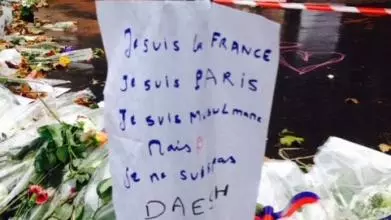 Je suis la FRANCE
Je suis PARIS
Je suis Musulmane
Mais
je ne suis pas
DAESH